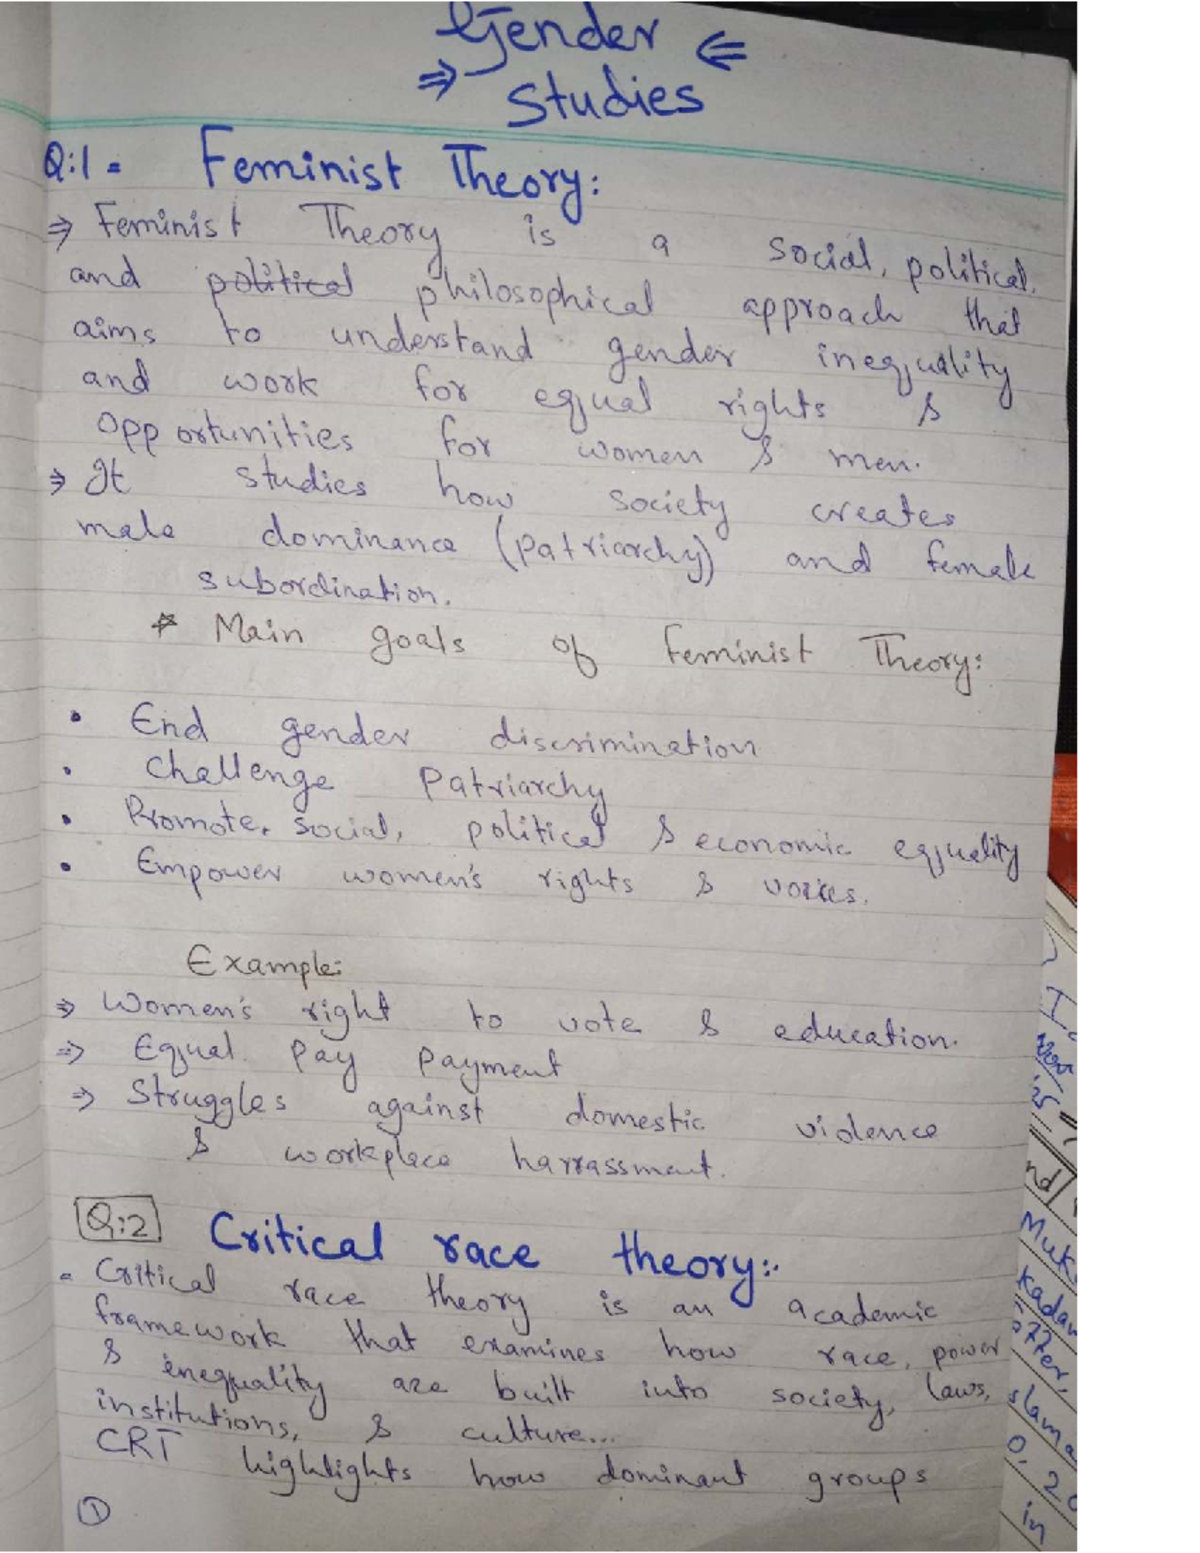 Gender ⇐
⇒ Studies
Q:1= Feminist Theory:
⇒ Feminist Theory is a social, political,
and political philosophical approach that
aims to understand gender inequality
and work for equal rights &
opportunities for women & men.
⇒ It studies how society creates
male dominance (patriarchy) and female
subordination.
* Main goals of Feminist Theory:
• End gender discrimination
• Challenge Patriarchy
• Promote, social, political & economic equality
• Empower women's rights & voices.
Example:
⇒ Women's right to vote & education.
⇒ Equal pay payment
⇒ Struggles against domestic violence
& workplace harrassment.
Q:2 Critical race theory:
- Critical race theory is an academic
framework that examines how race, power
& inequality are built into society, laws,
institutions, & culture...
CRT highlights how dominant groups
①
nd
Muk
Kadar
slama
0, 20
in